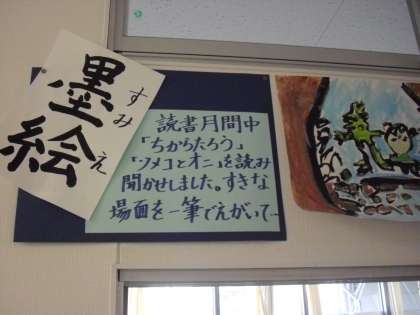 墨絵
すみえ
読書月間中
「ちからたろう」
「ソメコとオニ」を読み
聞かせしました。すきな
場面を一筆でえがいて…